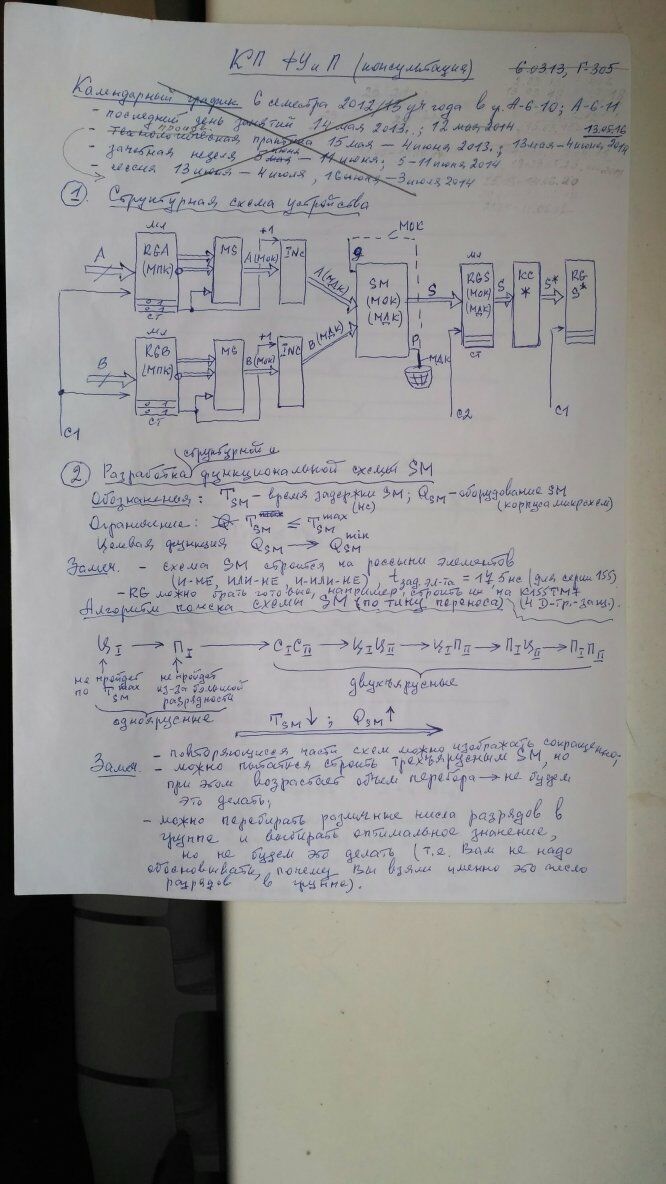 КП ФУиП (консультация)
60313, Г-305
Календарный график 6 семестра 2012/13 уч года в гр. А-6-10; А-6-11
- последний день занятий 14 мая 2013.; 12 мая 2014
13.05.16
- практика 15 мая – 4 июня 2013., 13 мая – 4 июня 2014
- зачетная неделя 5 июня – 11 июня; 5 – 11 июня 2014
- сессия 13 июня – 4 июля, 16 июня – 3 июля 2014
1. Структурная схема устройства
МОК
мл RGA (МПК) 0 1 0 1 СТ
A
MS
+1
A(МОК)
INC
A(МДК)
SM (МОК) (МДК)
S
мл RGS (МОК) (МДК) СТ
S
КС *
S*
RG S*
B
мл RGB (МПК) 0 1 0 1 СТ
MS
+1
B(МОК)
INC
B(МДК)
P
МДК
C1
C2
C1
структурной и
2. Разработка функциональной схемы SM
Обозначения: TSM – время задержки SM; QSM – оборудование SM
(нс) (корпуса микросхем)
Ограничение: TSM ≤ TSM max
Целевая функция QSM → QSM min
Замеч. - схема SM строится на россыпи элементов
(И-НЕ, ИЛИ-НЕ, И-ИЛИ-НЕ), tзад.эл-та = 17,5 нс (для серии 155)
- RG можно брать готовые, например, строить их на К155ТМ7
(4 D-тр.-защ.).
Алгоритм поиска схемы SM (по типу переноса)
ЦI → ПI → CICII → ЦIЦII → ЦIПII → ПIЦII → ПIПII
не пройдет по TSM max
не пройдет из-за большой разрядности
одноярусные
двухъярусные
TSM ↓ ; QSM ↑
Замеч. - повторяющиеся части схем можно изображать сокращенно;
- можно пытаться строить трехъярусным SM, но
при этом возрастает объем перебора → не будем
это делать;
- можно перебирать различные числа разрядов в
группе и выбирать оптимальное значение,
но не будем это делать (т.е. Вам не надо
обосновывать, почему Вы взяли именно это число
разрядов в группе).